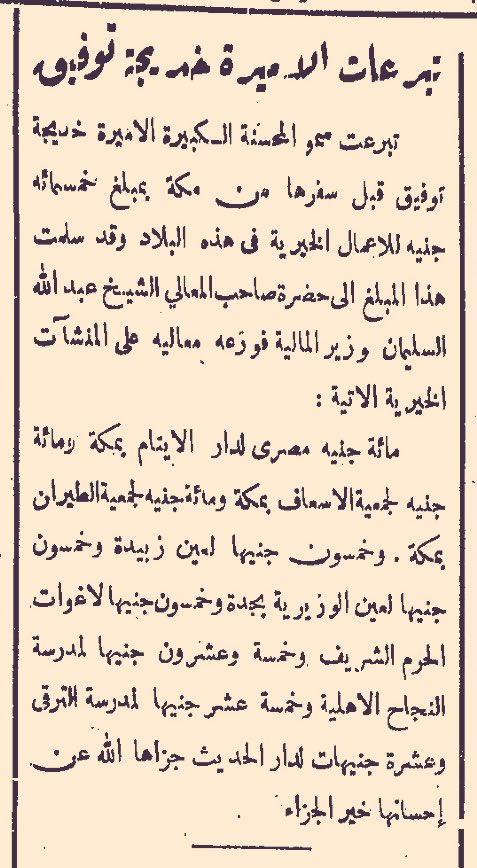 تبرعات الاميرة خديجة توفيق
تبرعت سمو المحسنة الكبيرة الاميرة خديجة
توفيق قبل سفرها من مكة بمبلغ خمسمائه
جنيه للاعمال الخيرية فى هذه البلاد وقد سلمت
هذا المبلغ الى حضرة صاحب المعالي الشيخ عبد الله
السليمان وزير المالية فوزعه معاليه على المنشآت
الخيرية الاتية :
مائة جنيه مصرى لدار الايتام بمكة ومائة
جنيه لجمعية الاسعاف بمكة ومائة جنيه لجمعية الطيران
بمكة . وخمسون جنيها لعين زبيدة وخمسون
جنيها لعين الوزيرية بجدة وخمسون جنيها لاغوات
الحرم الشريف وخمسة وعشرون جنيها لمدرسة
النجاح الاهلية وخمسة عشر جنيها لمدرسة الترقى
وعشرة جنيهات لدار الحديث جزاها الله عن
إحسانها خير الجزاء